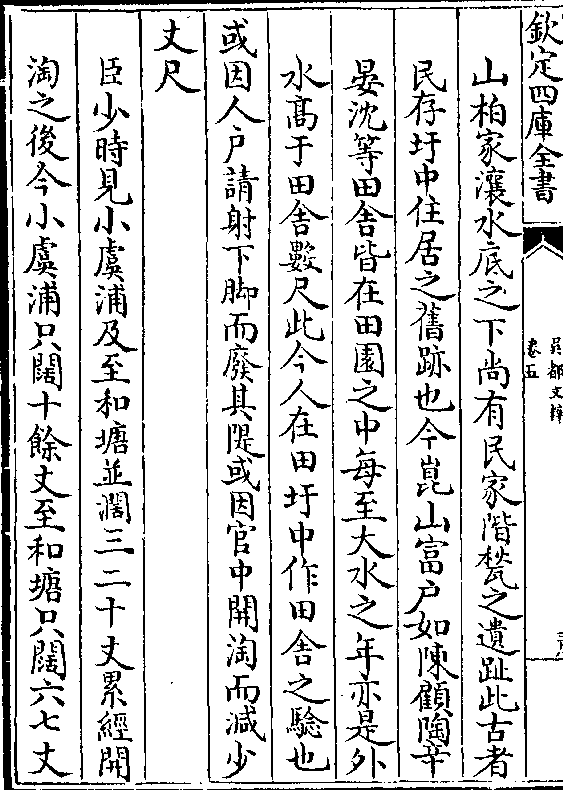 欽定四庫全書
吳都文粹
卷五
山柏家瀼水底之下尚有民家階甃之遺趾此古者
民存圩中住居之舊跡也今崑山富户如陳顧陶辛
晏沈等田舍皆在田園之中每至大水之年亦是外
水髙于田舍數尺此今人在田圩中作田舍之驗也
或因人户請射下脚而廢其隄或因官中開淘而減少
丈尺
臣少時見小虞浦及至和塘並濶三二十丈累經開
淘之後今小虞浦只闊十餘丈至和塘只闊六七丈